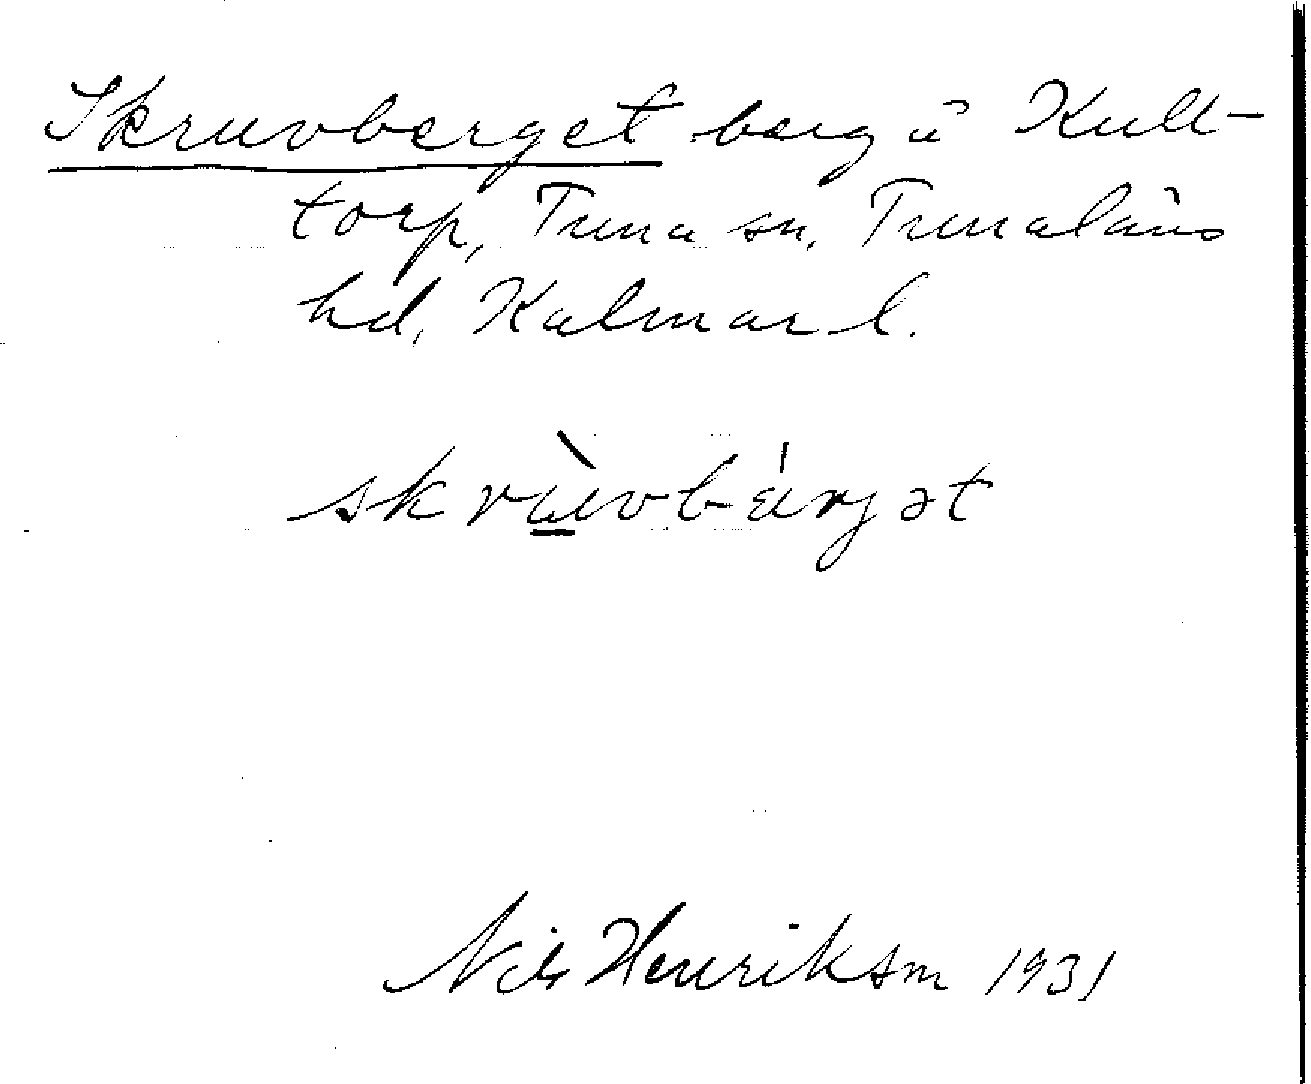 Skruvberget berg i Kull-
torp, Tuna sn, Tunaläns
hd, Kalmar l.
skru̠̇vbärjət
Nils Henriksson 1931